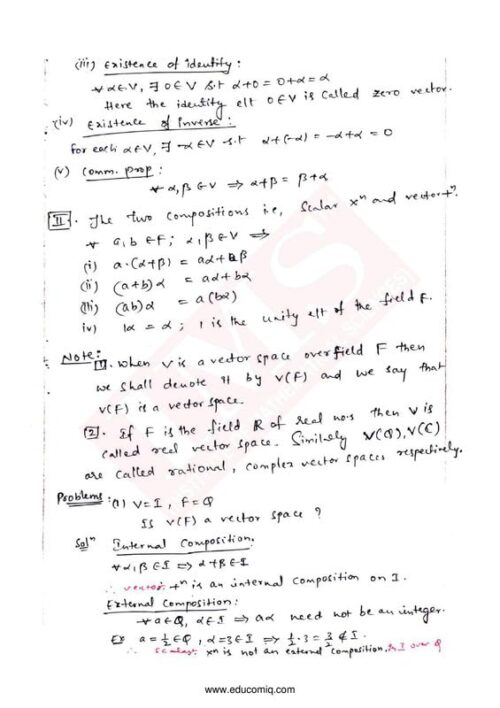 (iii) Existence of identity :
∀ α∈V, ∃ 0∈V s.t α+0 = 0+α = α
Here the identity elt 0∈V is called zero vector.
(iv) Existence of inverse :
For each α∈V, ∃ -α∈V s.t α+(-α) = -α+α = 0
(v) Comm. prop :
∀ α,β∈V ⇒ α+β = β+α
II. The two compositions i.e, scalar xⁿ and vector +ⁿ.
∀ a,b∈F; α,β∈V ⇒
(i) a·(α+β) = aα+aβ
(ii) (a+b)α = aα+bα
(iii) (ab)α = a(bα)
iv) 1α = α ; 1 is the unity elt of the field F.
Note: 1. When V is a vector space over field F then
we shall denote it by V(F) and we say that
V(F) is a vector space.
2. If F is the field R of real no.s then V is
called real vector space. Similarly V(Q), V(C)
are called rational, complex vector spaces respectively.
Problems: (1) V=I, F=Q
Is V(F) a vector space ?
Solⁿ Internal Composition:
∀ α,β∈I ⇒ α+β∈I
∴ vector +ⁿ is an internal composition on I.
External Composition :
∀ a∈Q, α∈I ⇒ aα need not be an integer.
Ex a=½∈Q, α=3∈I ⇒ ½·3 = 3/2 ∉ I.
∴ scalar xⁿ is not an external composition, in I over Q
www.educomiq.com